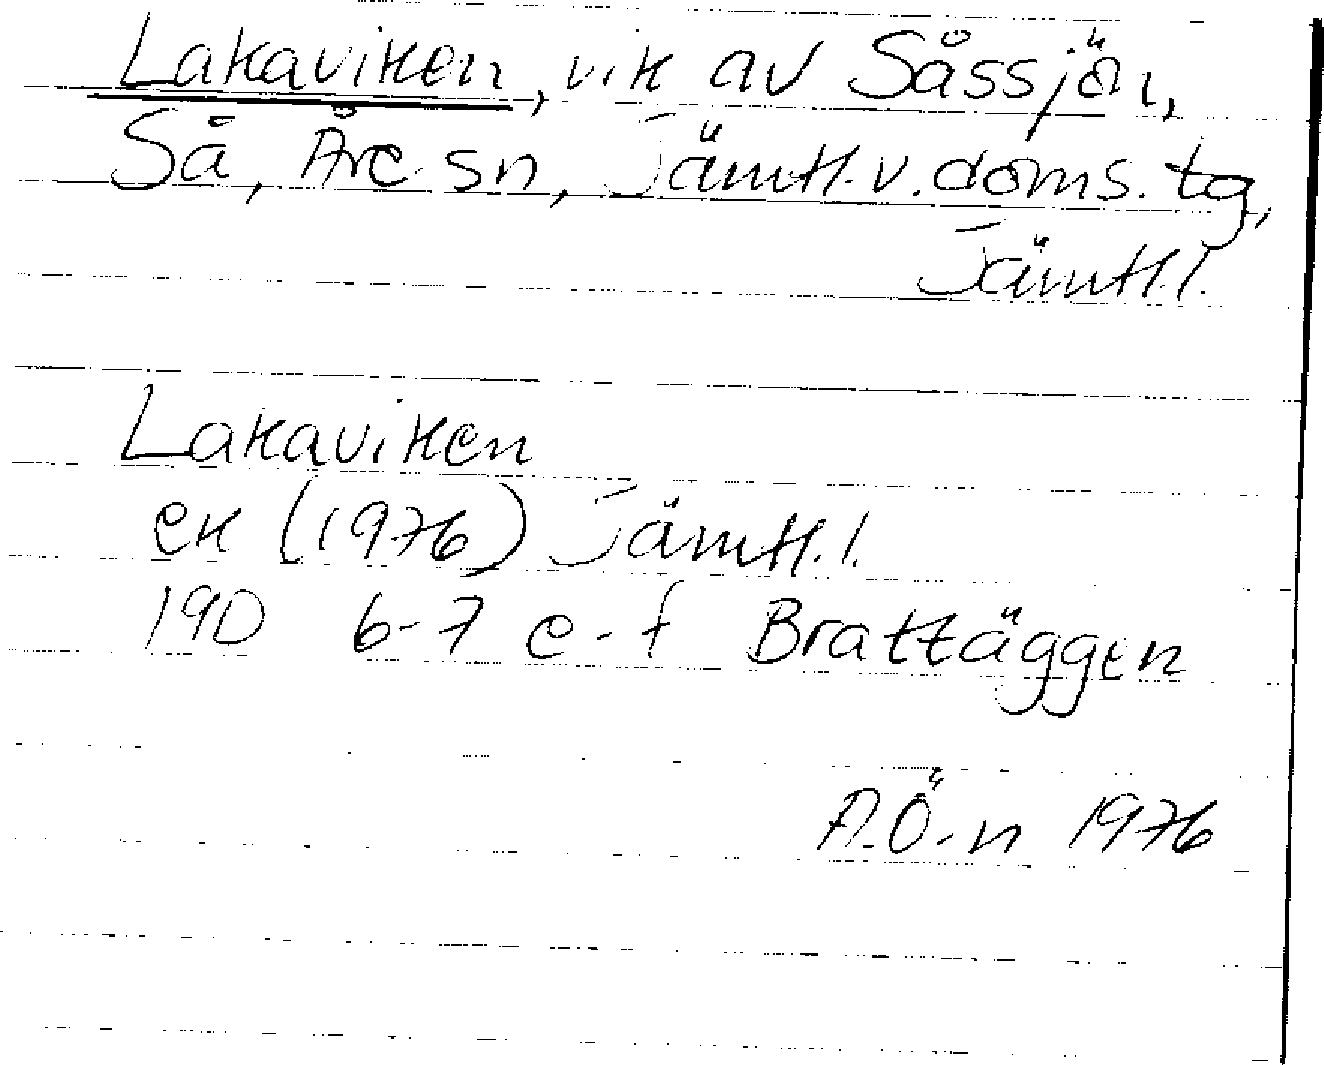 Lakaviken, vik av Såssjön,
Så, Åre sn, Jämtl. v. doms. tg,
Jämtl. l.
Lakaviken
ek (1976) Jämtl. l.
19D 6-7 e-f Brattäggen
A.Ö-n 1976